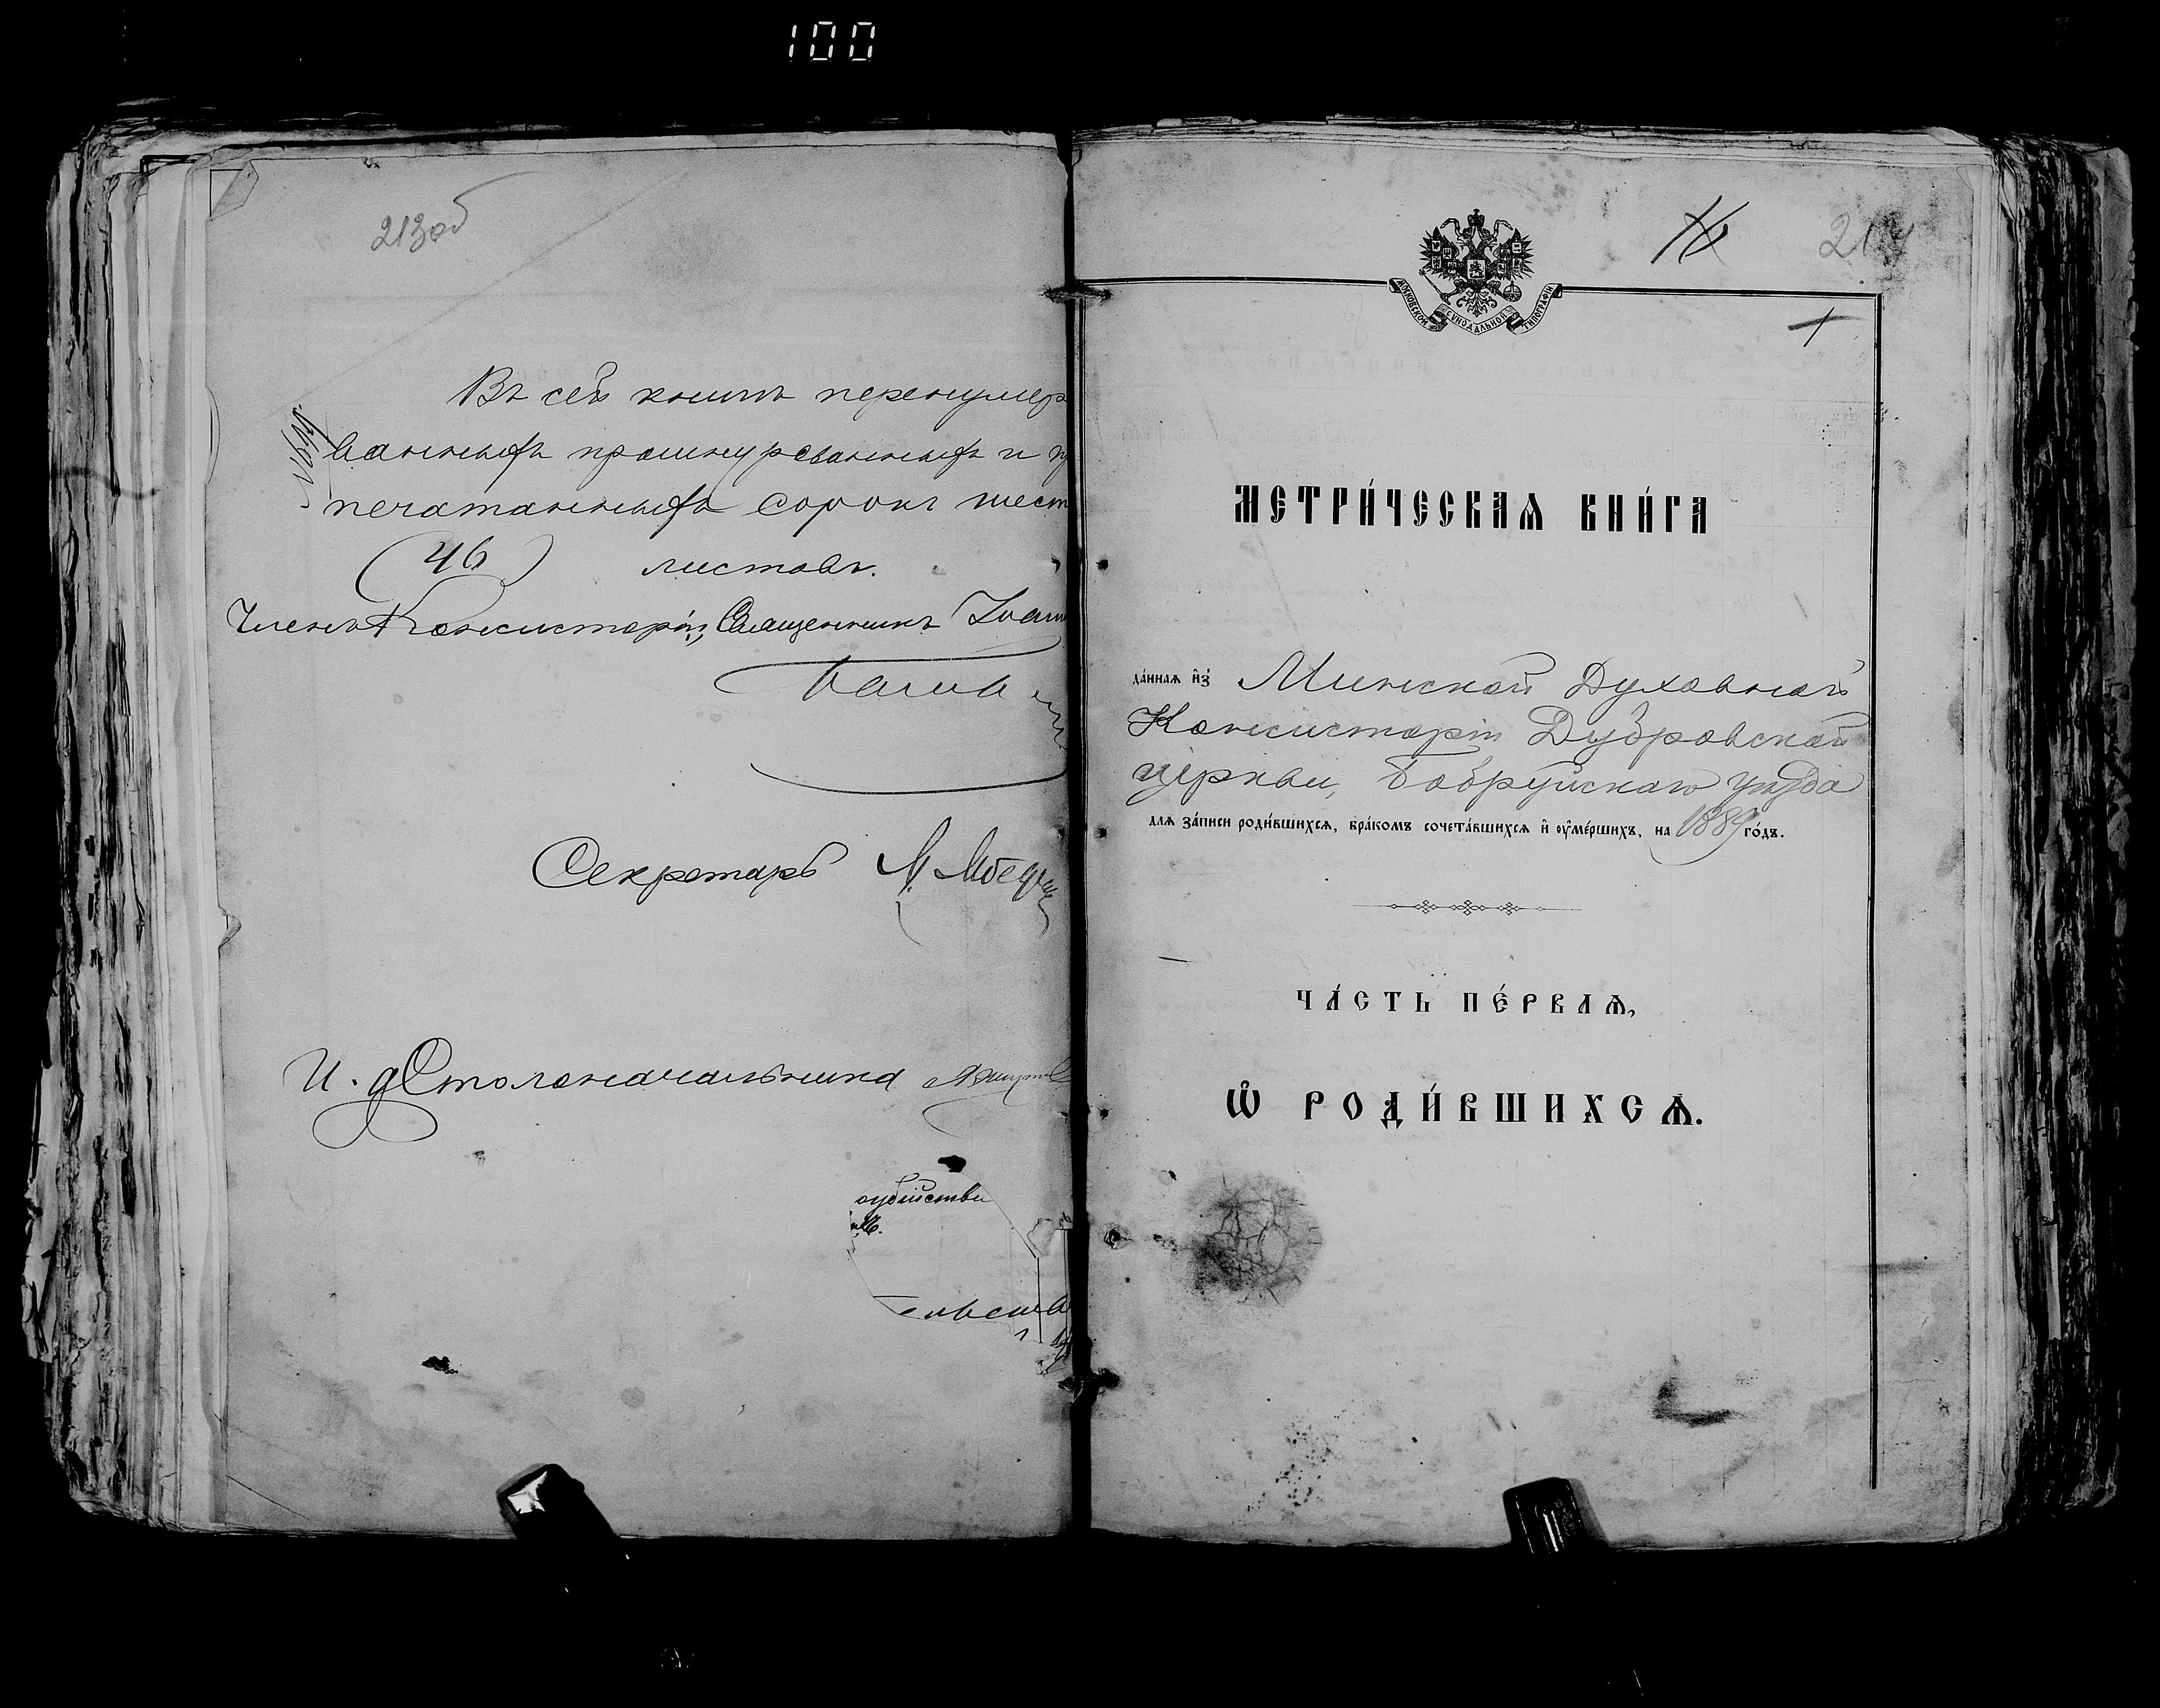 100
213об
Въ сей книгѣ перенумеро
ванныхъ прошнурованныхъ и п
печатанныхъ сорокъ шест
(46) листовъ.
Членъ Консисторіи, Священникъ Іоанн
Секретарь
И. д. Столоначальника
214
МОСКОВСКОЙ СѴНОДАЛЬНОЙ ТИПОГРАФІИ
1
МЕТРИ́ЧЕСКАѦ КНИ́ГА
да́ннаѧ и҆з̾ Минской Духовной
Консисторіи Дубровской
церкви, Бобруйскаго уѣзда
длѧ за́писи роди́вшихсѧ, бра́комъ сочета́вшихсѧ и҆ ѹ҆ме́ршихъ, на 1889 го́дъ.
ЧА́СТЬ ПЕ́РВАѦ,
Ѡ҆ РОДИ́ВШИХСѦ.